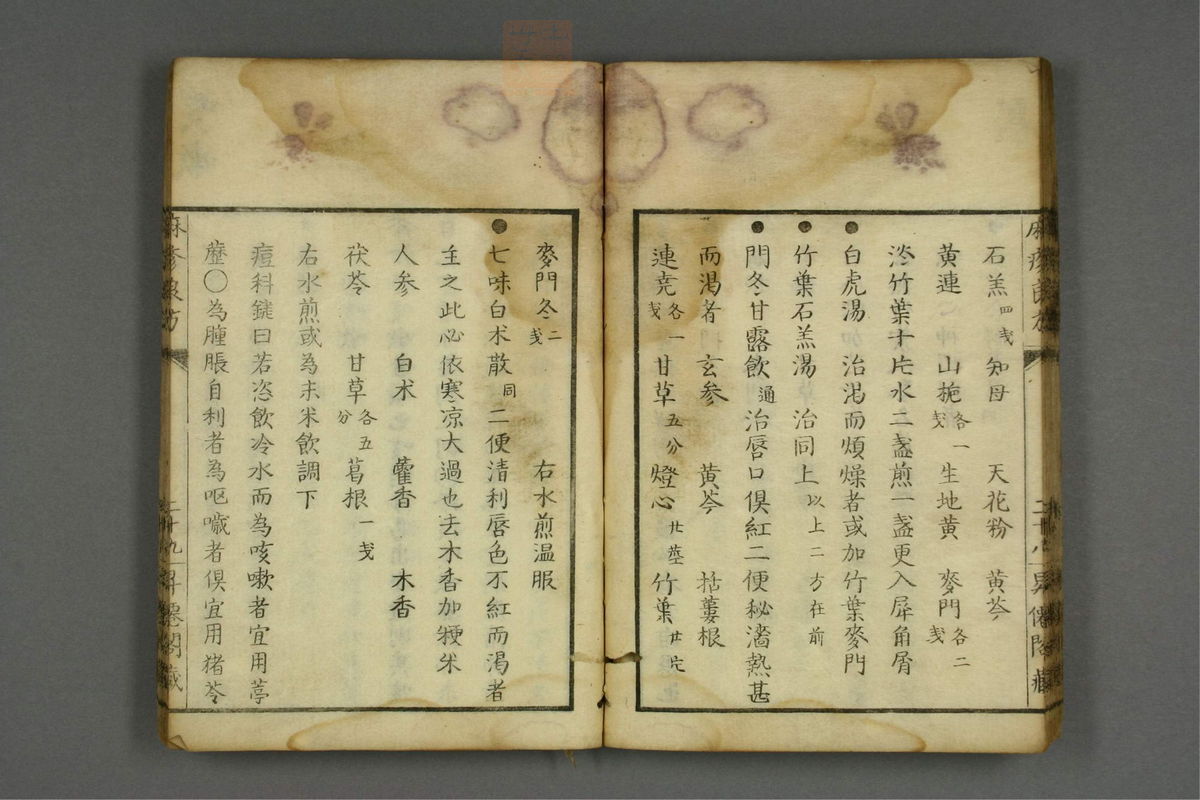 石羔四戔 知母 天花粉 黄芩
黄連 山梔各一戔 生地黄 麥門各二戔
淡竹葉十片水二盞煎一盞更入犀角屑
白虎湯加 治渇而煩燥者或加竹葉麥門
竹葉石羔湯 治同上以上二方在前
門冬甘露飲通治唇口俱紅二便秘濇熱甚
而渇者 玄参 黄芩 括蔞根
連尭各一戔 甘草五分 燈心廿莖 竹葉廿片
麥門冬二戔 右水煎温服
七味白术散同二便清利唇色不紅而渇者
主之此必依寒凉大過也去木香加粳米
人参 白术 藿香 木香
茯苓 甘草各五分 葛根一戔
右水煎或為末米飲調下
痘科鍵曰若恣飲冷水而為咳嗽者宜用葶
藶○為腫脹自利者為呕噦者俱宜用猪苓